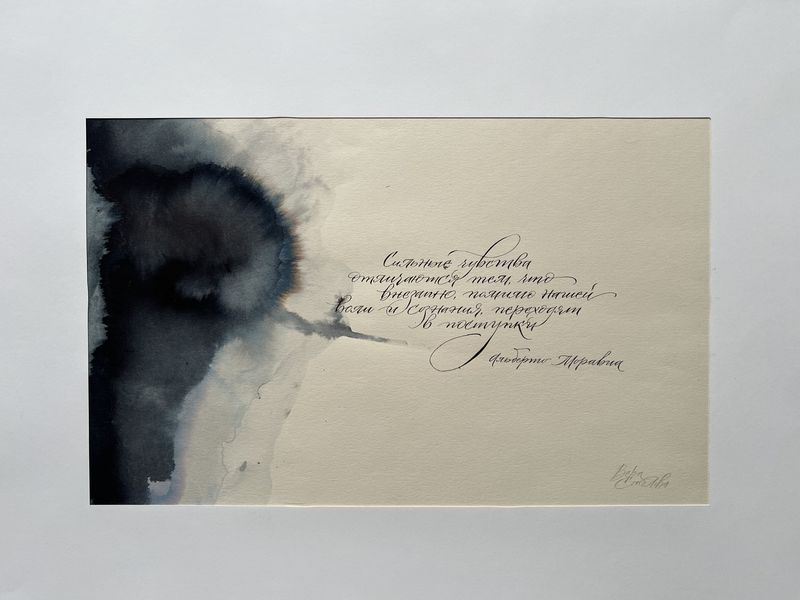 Сильные чувства
отличаются тем, что
внезапно, помимо нашей
воли и сознания, переходят
в поступки
Альберто Моравиа
Вера